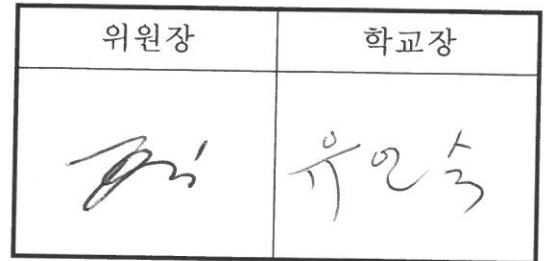 위원장 학교장
유인숙